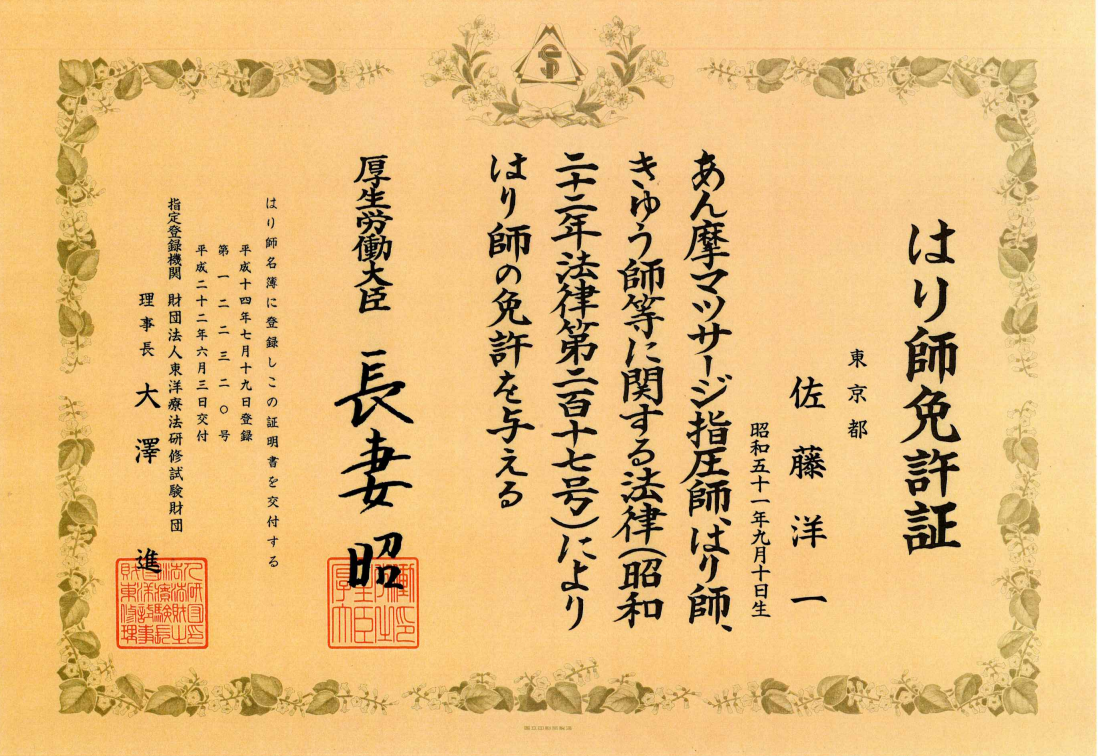 はり師免許証
東京都
佐藤洋一
昭和五十一年九月十日生
あん摩マツサージ指圧師、はり師、
きゆう師等に関する法律(昭和
二十二年法律第二百十七号)により
はり師の免許を与える
厚生労働大臣 長妻昭
はり師名簿に登録しこの証明書を交付する
平成十四年七月十九日登録
第一二二三二〇号
平成二十二年六月三日交付
指定登録機関 財団法人東洋療法研修試験財団
理事長 大澤進